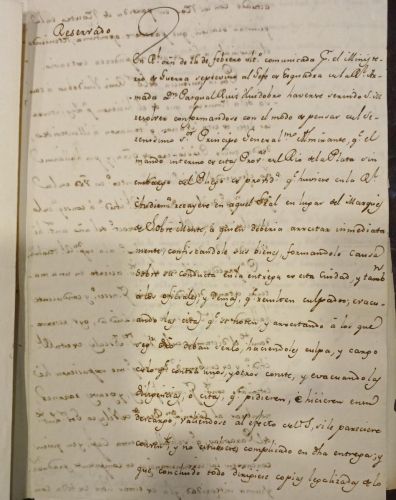 Reservado
En Rl orn de 24 de febrero ulto comunicada pr el Ministe
rio de Guerra se previno al Gefe de Esquadra de la Rl Ar-
mada Dn Pasqual Ruiz Huidobro haverse servido S.M.
resolver conformandose con el modo de pensar del Se
renisimo Sr Principe Generalmo Almirante, qe el
mando interino de esas Provs del Rio de la Plata sin
embargo del Pliego de provida qe huviere en la Rl
Audiencia recayere en aquel Gral en lugar del Marques
de Sobre Monte, a quien deberia arrestar inmediata
mente, confiscandole sus bienes, formandole causa
sobre su conducta en la entrega de esa Ciudad, y tambn
a los oficiales, y demas, qe resulten culpados; evacu-
ando las citas, qe se noten, y arrestando a los que
segn deban serlo, haciendoles culpa, y cargo
de lo qe contra unos, y otros conste, y evacuando las
diligencias, o citas, qe pidieren, e hicieren en su
descargo, valiendose al efecto de VS, si le pareciere
convente y no estuviere complicado en dha entrega; y
que, concluido todo, dirigiese copias legalizadas de lo